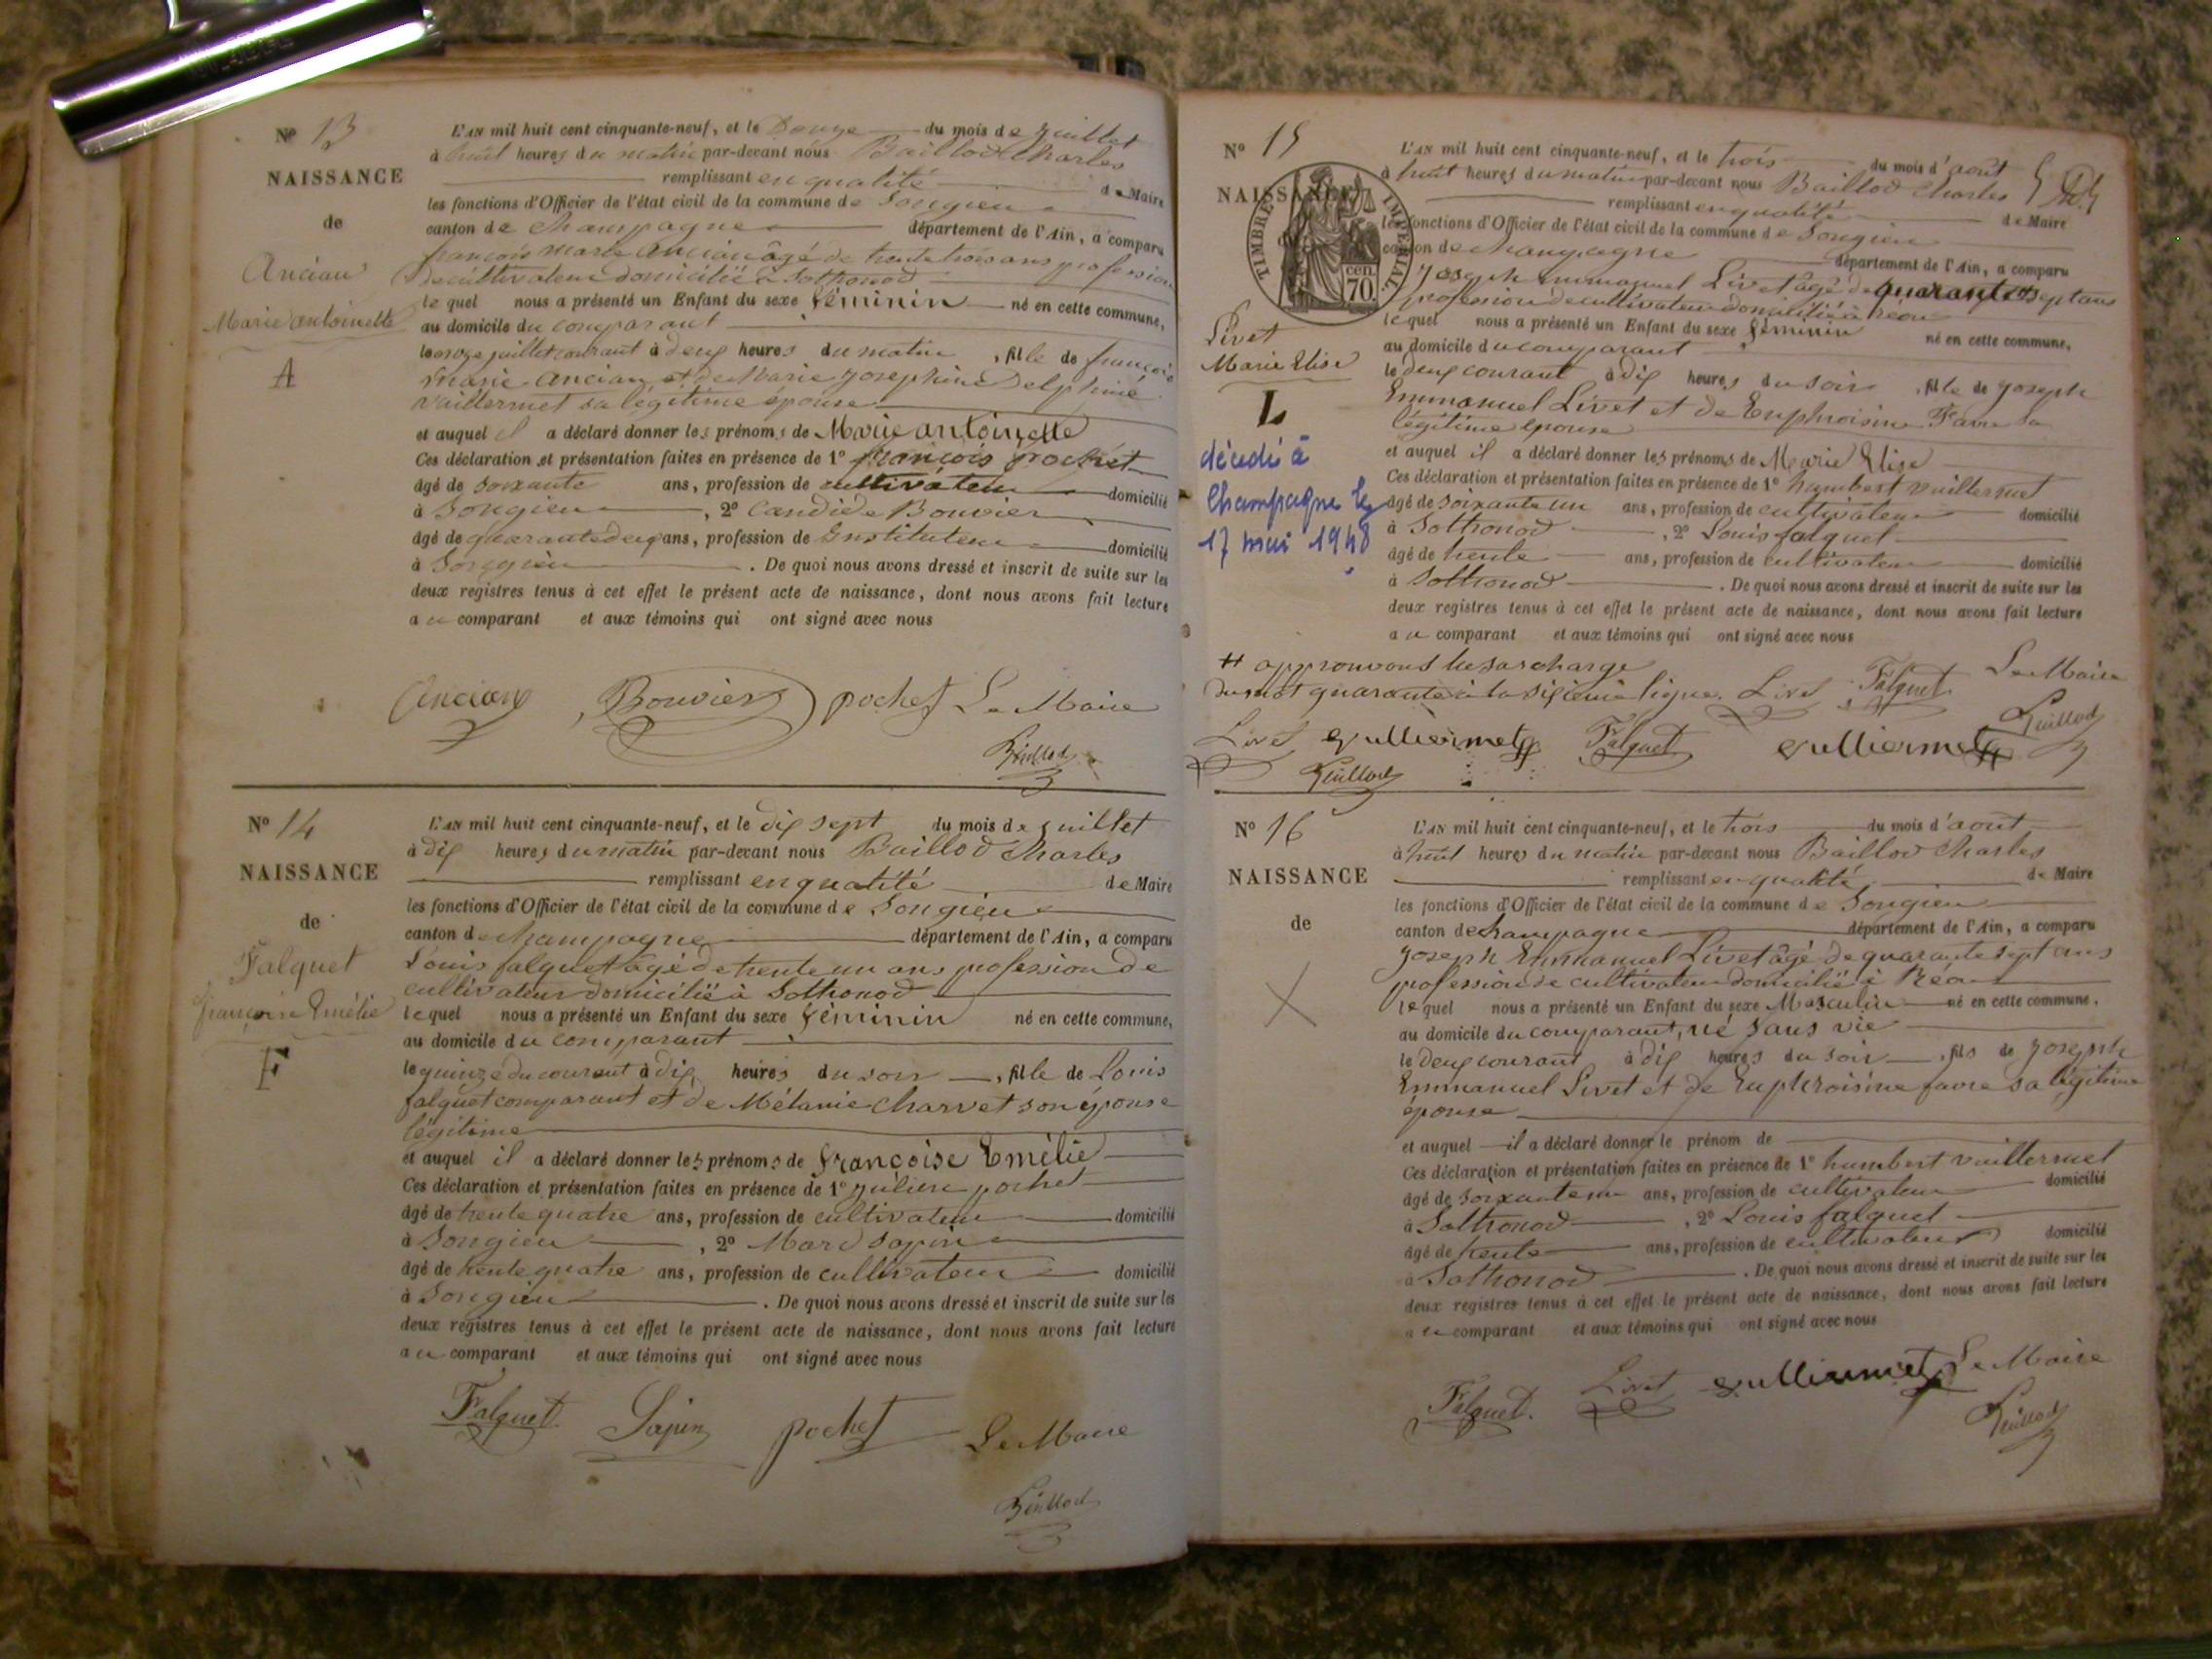 N° 13
NAISSANCE
de
Ancian
Marie antoinette
A
L'AN mil huit cent cinquante-neuf, et le Douze du mois de juillet
à huit heures du matin par-devant nous Baillod Charles
remplissant en qualité de Maire
les fonctions d'Officier de l'état civil de la commune de Songieu
canton de Champagne département de l'Ain, a comparu
françois marie Ancian âgé de trente trois ans profession
de cultivateur domicilié à Sothonod
lequel nous a présenté un Enfant du sexe féminin né en cette commune,
au domicile du comparant
le onze juillet courant à deux heures du matin, fille de françois
marie ancian et de Marie josephine Delphine
vuillermet sa légitime épouse
et auquel il a déclaré donner les prénoms de Marie antoinette
Ces déclaration et présentation faites en présence de 1° françois pochet
âgé de soixante ans, profession de cultivateur domicilié
à Songieu, 2° Candide Bouvier
âgé de quarante deux ans, profession de Instituteur domicilié
à Songieu. De quoi nous avons dressé et inscrit de suite sur les
deux registres tenus à cet effet le présent acte de naissance, dont nous avons fait lecture
au comparant et aux témoins qui ont signé avec nous
Ancian Bouvier pochet Le Maire
Baillod
N° 14
NAISSANCE
de
Falquet
françoise Emélie
F
L'AN mil huit cent cinquante-neuf, et le dix sept du mois de juillet
à dix heures du matin par-devant nous Baillod Charles
remplissant en qualité de Maire
les fonctions d'Officier de l'état civil de la commune de Songieu
canton de Champagne département de l'Ain, a comparu
Louis falquet âgé de trente un ans profession de
cultivateur domicilié à Sothonod
lequel nous a présenté un Enfant du sexe féminin né en cette commune,
au domicile du comparant
le quinze du courant à dix heures du soir, fille de Louis
falquet comparant et de Mélanie Charvet son épouse
légitime
et auquel il a déclaré donner les prénoms de françoise Emélie
Ces déclaration et présentation faites en présence de 1° julien pochet
âgé de trente quatre ans, profession de cultivateur domicilié
à Songieu, 2° Marc Sapin
âgé de trente quatre ans, profession de cultivateur domicilié
à Songieu. De quoi nous avons dressé et inscrit de suite sur les
deux registres tenus à cet effet le présent acte de naissance, dont nous avons fait lecture
au comparant et aux témoins qui ont signé avec nous
Falquet Sapin pochet Le Maire
Baillod
N° 15
NAISSANCE
TIMBRE IMPÉRIAL
cen. 70.
Livet
Marie Elise
L
décédé à
Champagne le
17 mai 1948
L'AN mil huit cent cinquante-neuf, et le trois du mois d'août
à huit heures du matin par-devant nous Baillod Charles
remplissant en qualité de Maire
les fonctions d'Officier de l'état civil de la commune de Songieu
canton de Champagne département de l'Ain, a comparu
Joseph Emmanuel Livet âgé de quarante # sept ans
profession de cultivateur domicilié à Réon
lequel nous a présenté un Enfant du sexe féminin né en cette commune,
au domicile du comparant
le deux courant à dix heures du soir, fille de joseph
Emmanuel Livet et de Euphroisine Favre sa
légitime épouse
et auquel il a déclaré donner les prénoms de Marie Elise
Ces déclaration et présentation faites en présence de 1° humbert vuillermet
âgé de soixante un ans, profession de cultivateur domicilié
à Sothonod, 2° Louis falquet
âgé de trente ans, profession de cultivateur domicilié
à Sothonod. De quoi nous avons dressé et inscrit de suite sur les
deux registres tenus à cet effet le présent acte de naissance, dont nous avons fait lecture
au comparant et aux témoins qui ont signé avec nous
# approuvons la surcharge
du mot quarante à la sixième ligne. Livet Falquet Le Maire
Baillod
Livet vulliermet Falquet vulliermet
Baillod
N° 16
NAISSANCE
de
L'AN mil huit cent cinquante-neuf, et le trois du mois d'août
à huit heures du matin par-devant nous Baillod Charles
remplissant en qualité de Maire
les fonctions d'Officier de l'état civil de la commune de Songieu
canton de Champagne département de l'Ain, a comparu
Joseph Emmanuel Livet âgé de quarante sept ans
profession de cultivateur domicilié à Réon
lequel nous a présenté un Enfant du sexe Masculin né en cette commune,
au domicile du comparant, né sans vie
le deux courant à dix heures du soir, fils de Joseph
Emmanuel Livet et de Euphroisine favre sa légitime
épouse
et auquel il a déclaré donner le prénom de
Ces déclaration et présentation faites en présence de 1° humbert vuillermet
âgé de soixante un ans, profession de cultivateur domicilié
à Sothonod, 2° Louis falquet
âgé de trente ans, profession de cultivateur domicilié
à Sothonod. De quoi nous avons dressé et inscrit de suite sur les
deux registres tenus à cet effet le présent acte de naissance, dont nous avons fait lecture
au comparant et aux témoins qui ont signé avec nous
Falquet Livet vulliermet Le Maire
Baillod